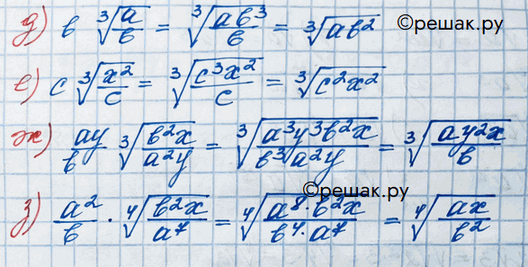 д) в ∛(a/в) = ∛(aв³/в) = ∛(aв²) ©решак.ру
е) c ∛(x²/c) = ∛(c³x²/c) = ∛(c²x²)
ж) ay/в ∛(в²x/a²y) = ∛(a³y³в²x/в³a²y) = ∛(ay²x/в)
©решак.ру
з) a²/в · ∜(в²x/a⁷) = ∜(a⁸·в²x/в⁴·a⁷) = ∜(ax/в²)